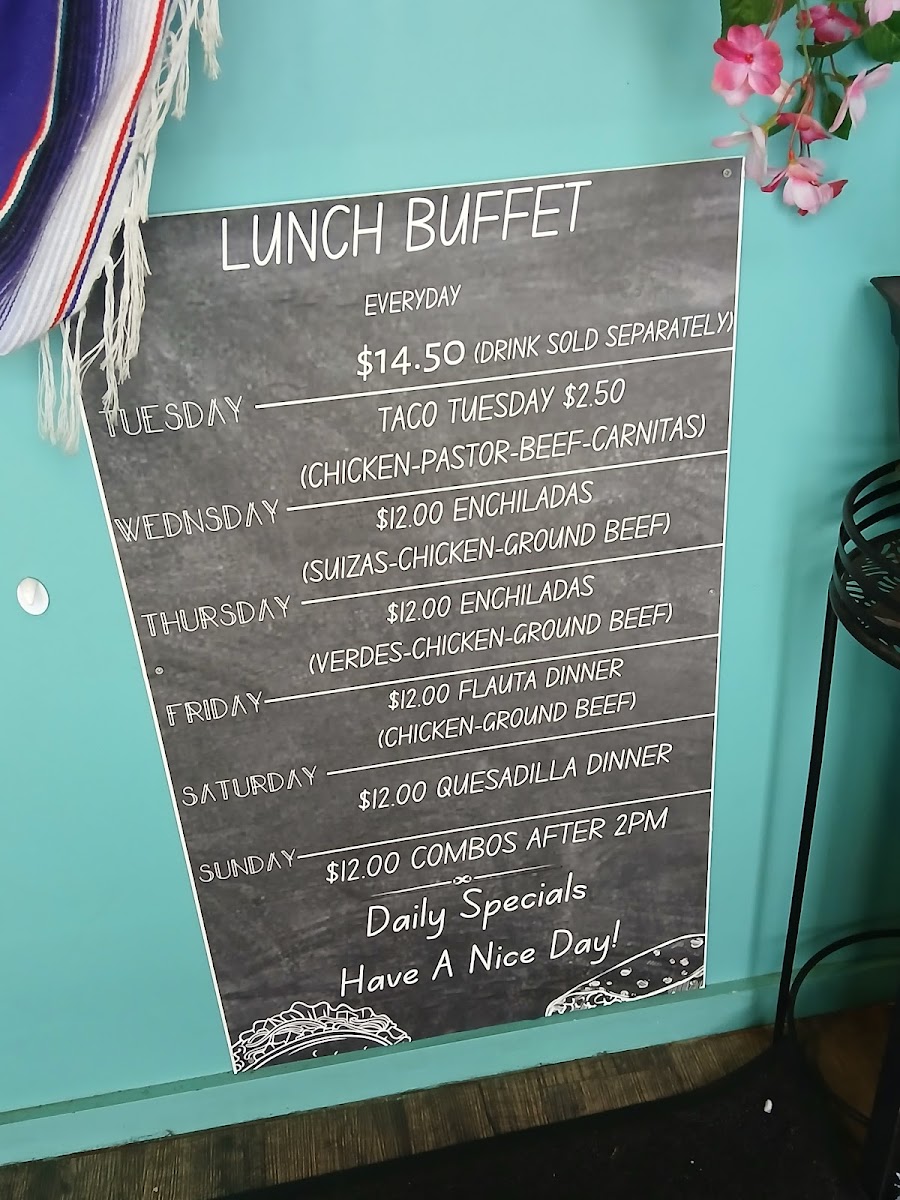 LUNCH BUFFET
EVERYDAY
$14.50 (DRINK SOLD SEPARATELY)
TUESDAY
TACO TUESDAY $2.50
(CHICKEN-PASTOR-BEEF-CARNITAS)
WEDNSDAY
$12.00 ENCHILADAS
(SUIZAS-CHICKEN-GROUND BEEF)
THURSDAY
$12.00 ENCHILADAS
(VERDES-CHICKEN-GROUND BEEF)
FRIDAY
$12.00 FLAUTA DINNER
(CHICKEN-GROUND BEEF)
SATURDAY
$12.00 QUESADILLA DINNER
SUNDAY
$12.00 COMBOS AFTER 2PM
Daily Specials
Have A Nice Day!